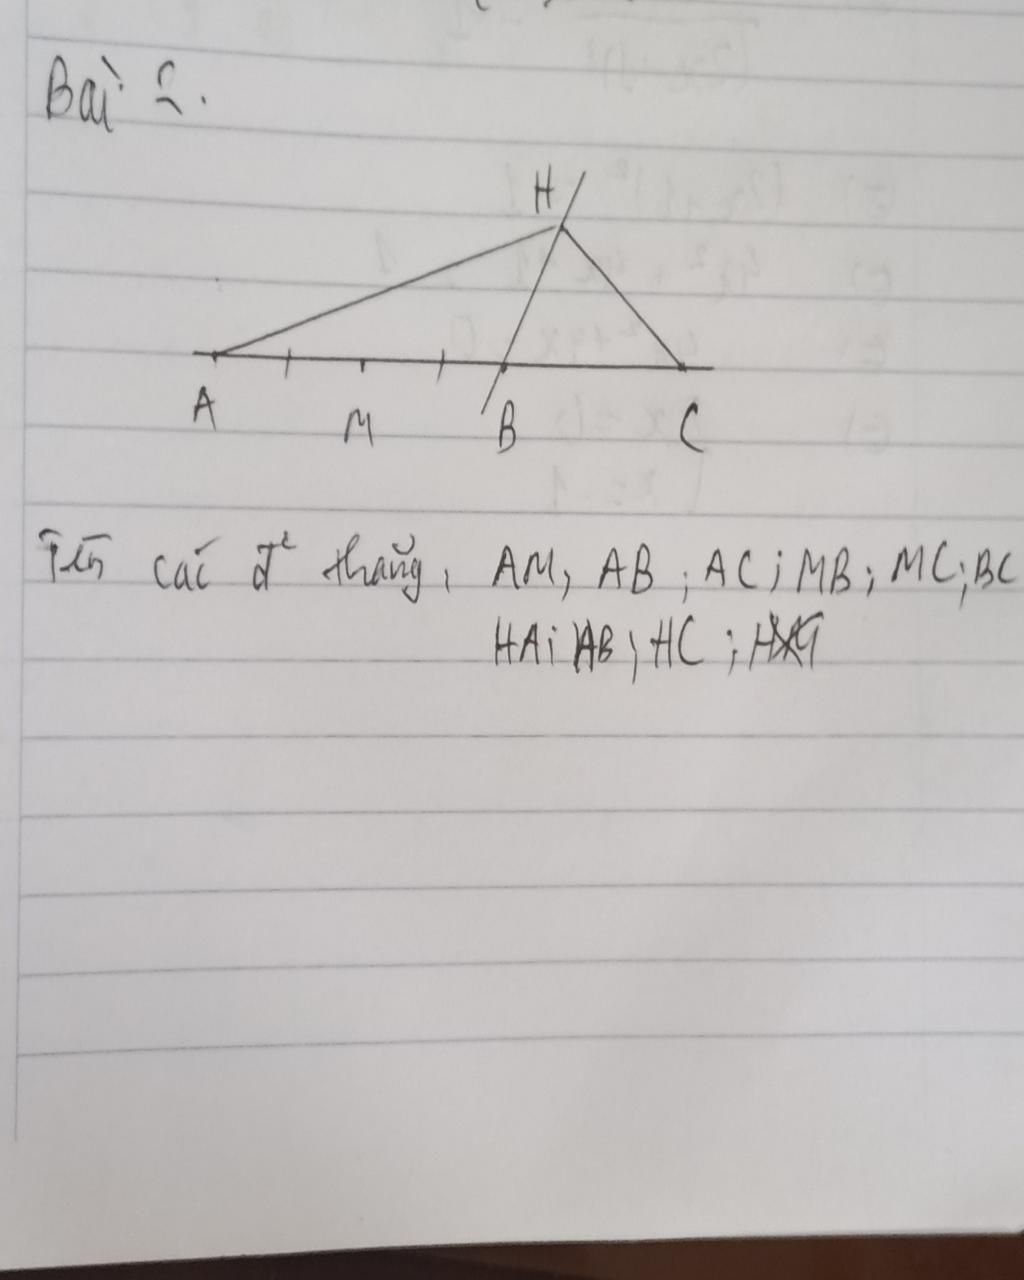 Bài 2.
H
A M B C
Tên các đ² thẳng, AM, AB ; AC ; MB ; MC ; BC
HA ; AB ; HC ;